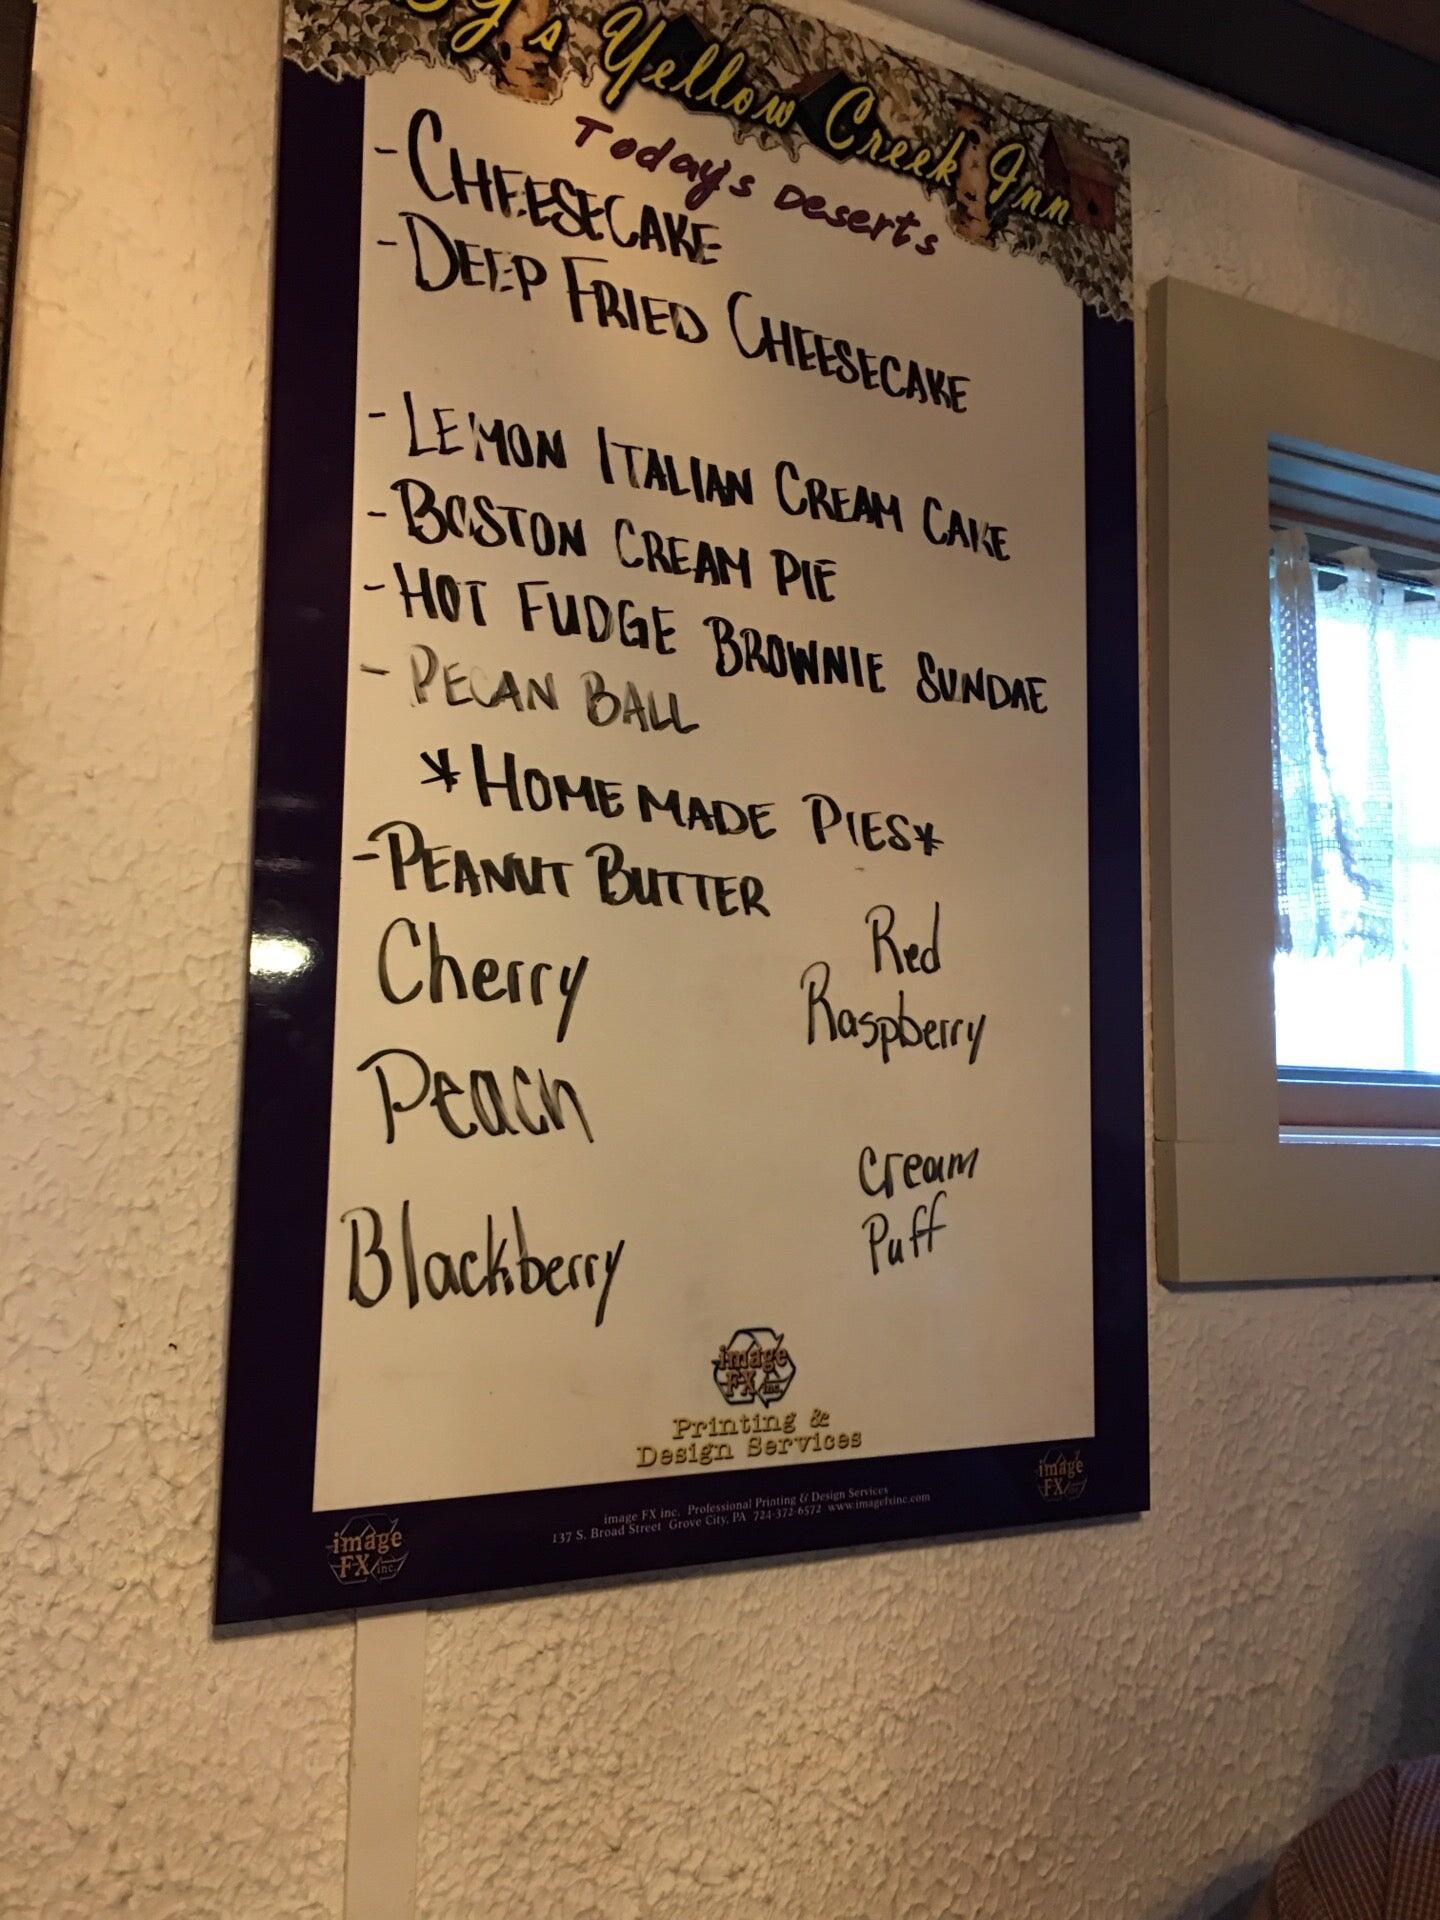 Yellow Creek Inn
Today's Deserts
- CHEESECAKE
- DEEP FRIED CHEESECAKE
- LEMON ITALIAN CREAM CAKE
- BOSTON CREAM PIE
- HOT FUDGE BROWNIE SUNDAE
- PECAN BALL
*HOMEMADE PIES*
- PEANUT BUTTER
Cherry
Peach
Blackberry
Red
Raspberry
Cream
Puff
image
FX inc.
Printing &
Design Services
image FX inc. Professional Printing & Design Services
137 S. Broad Street Grove City, PA 724-372-6572 www.imagefxinc.com
image
FX inc.
image
FX inc.